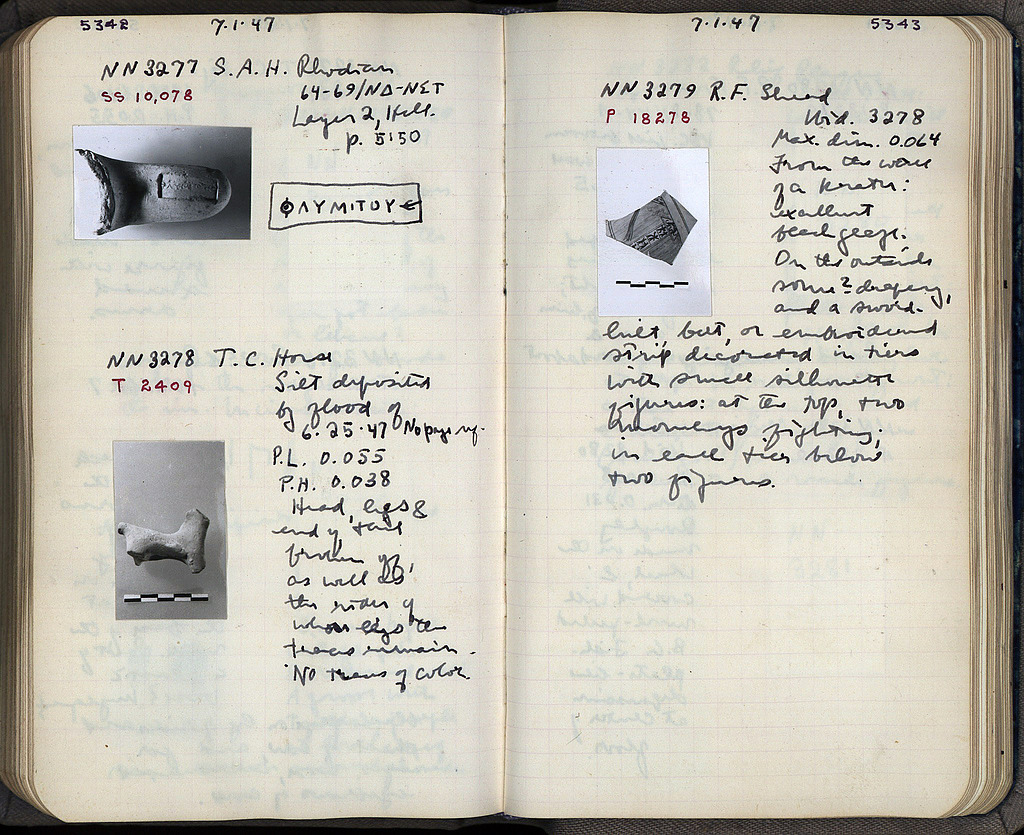 5342
7·1·47
NN 3277 S.A.H. Rhodian
SS 10,078
64-69/ΝΔ-ΝΣΤ
Layer 2, Hell.
p. 5150
ΟΛΥΜΙΤΟΥ
NN 3278 T.C. Horse
T 2409
Silt deposited
by flood of
6·25·47 No page ref.
P.L. 0.055
P.H. 0.038
Head, legs &
end of tail
broken off,
as well as
the rider of
whose legs the
traces remain.
No traces of color.
7·1·47
5343
NN 3279 R.F. Sherd
P 18278
Wid. 3278
Max. dim. 0.064
From the wall
of a krater:
excellent
black glaze.
On the outside
some? drapery,
and a sword-
hilt, but, or embroidered
strip decorated in tiers
with small silhouette
figures: at the top, two
fighting;
in each tier below
two figures.